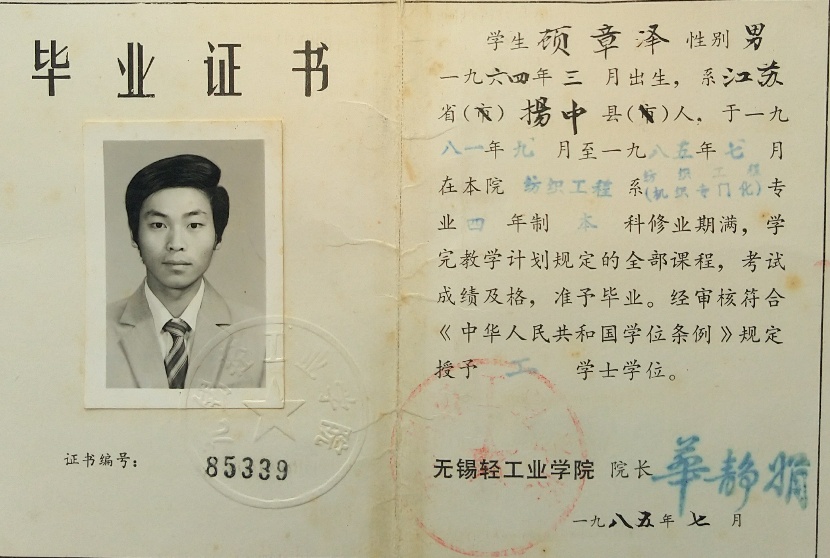 毕业证书
证书编号：85339
学生 顾章泽 性别 男
一九六四年 三 月出生，系江苏
省（市）扬中县（市）人，于一九
八一年九 月至一九八五年 七 月
在本院 纺织工程 系纺织工程（机织专门化）专
业 四 年制 本 科修业期满，学
完教学计划规定的全部课程，考试
成绩及格，准予毕业。经审核符合
《中华人民共和国学位条例》规定
授予 工 学士学位。
无锡轻工业学院 院长 華静娟
一九八五年 七 月